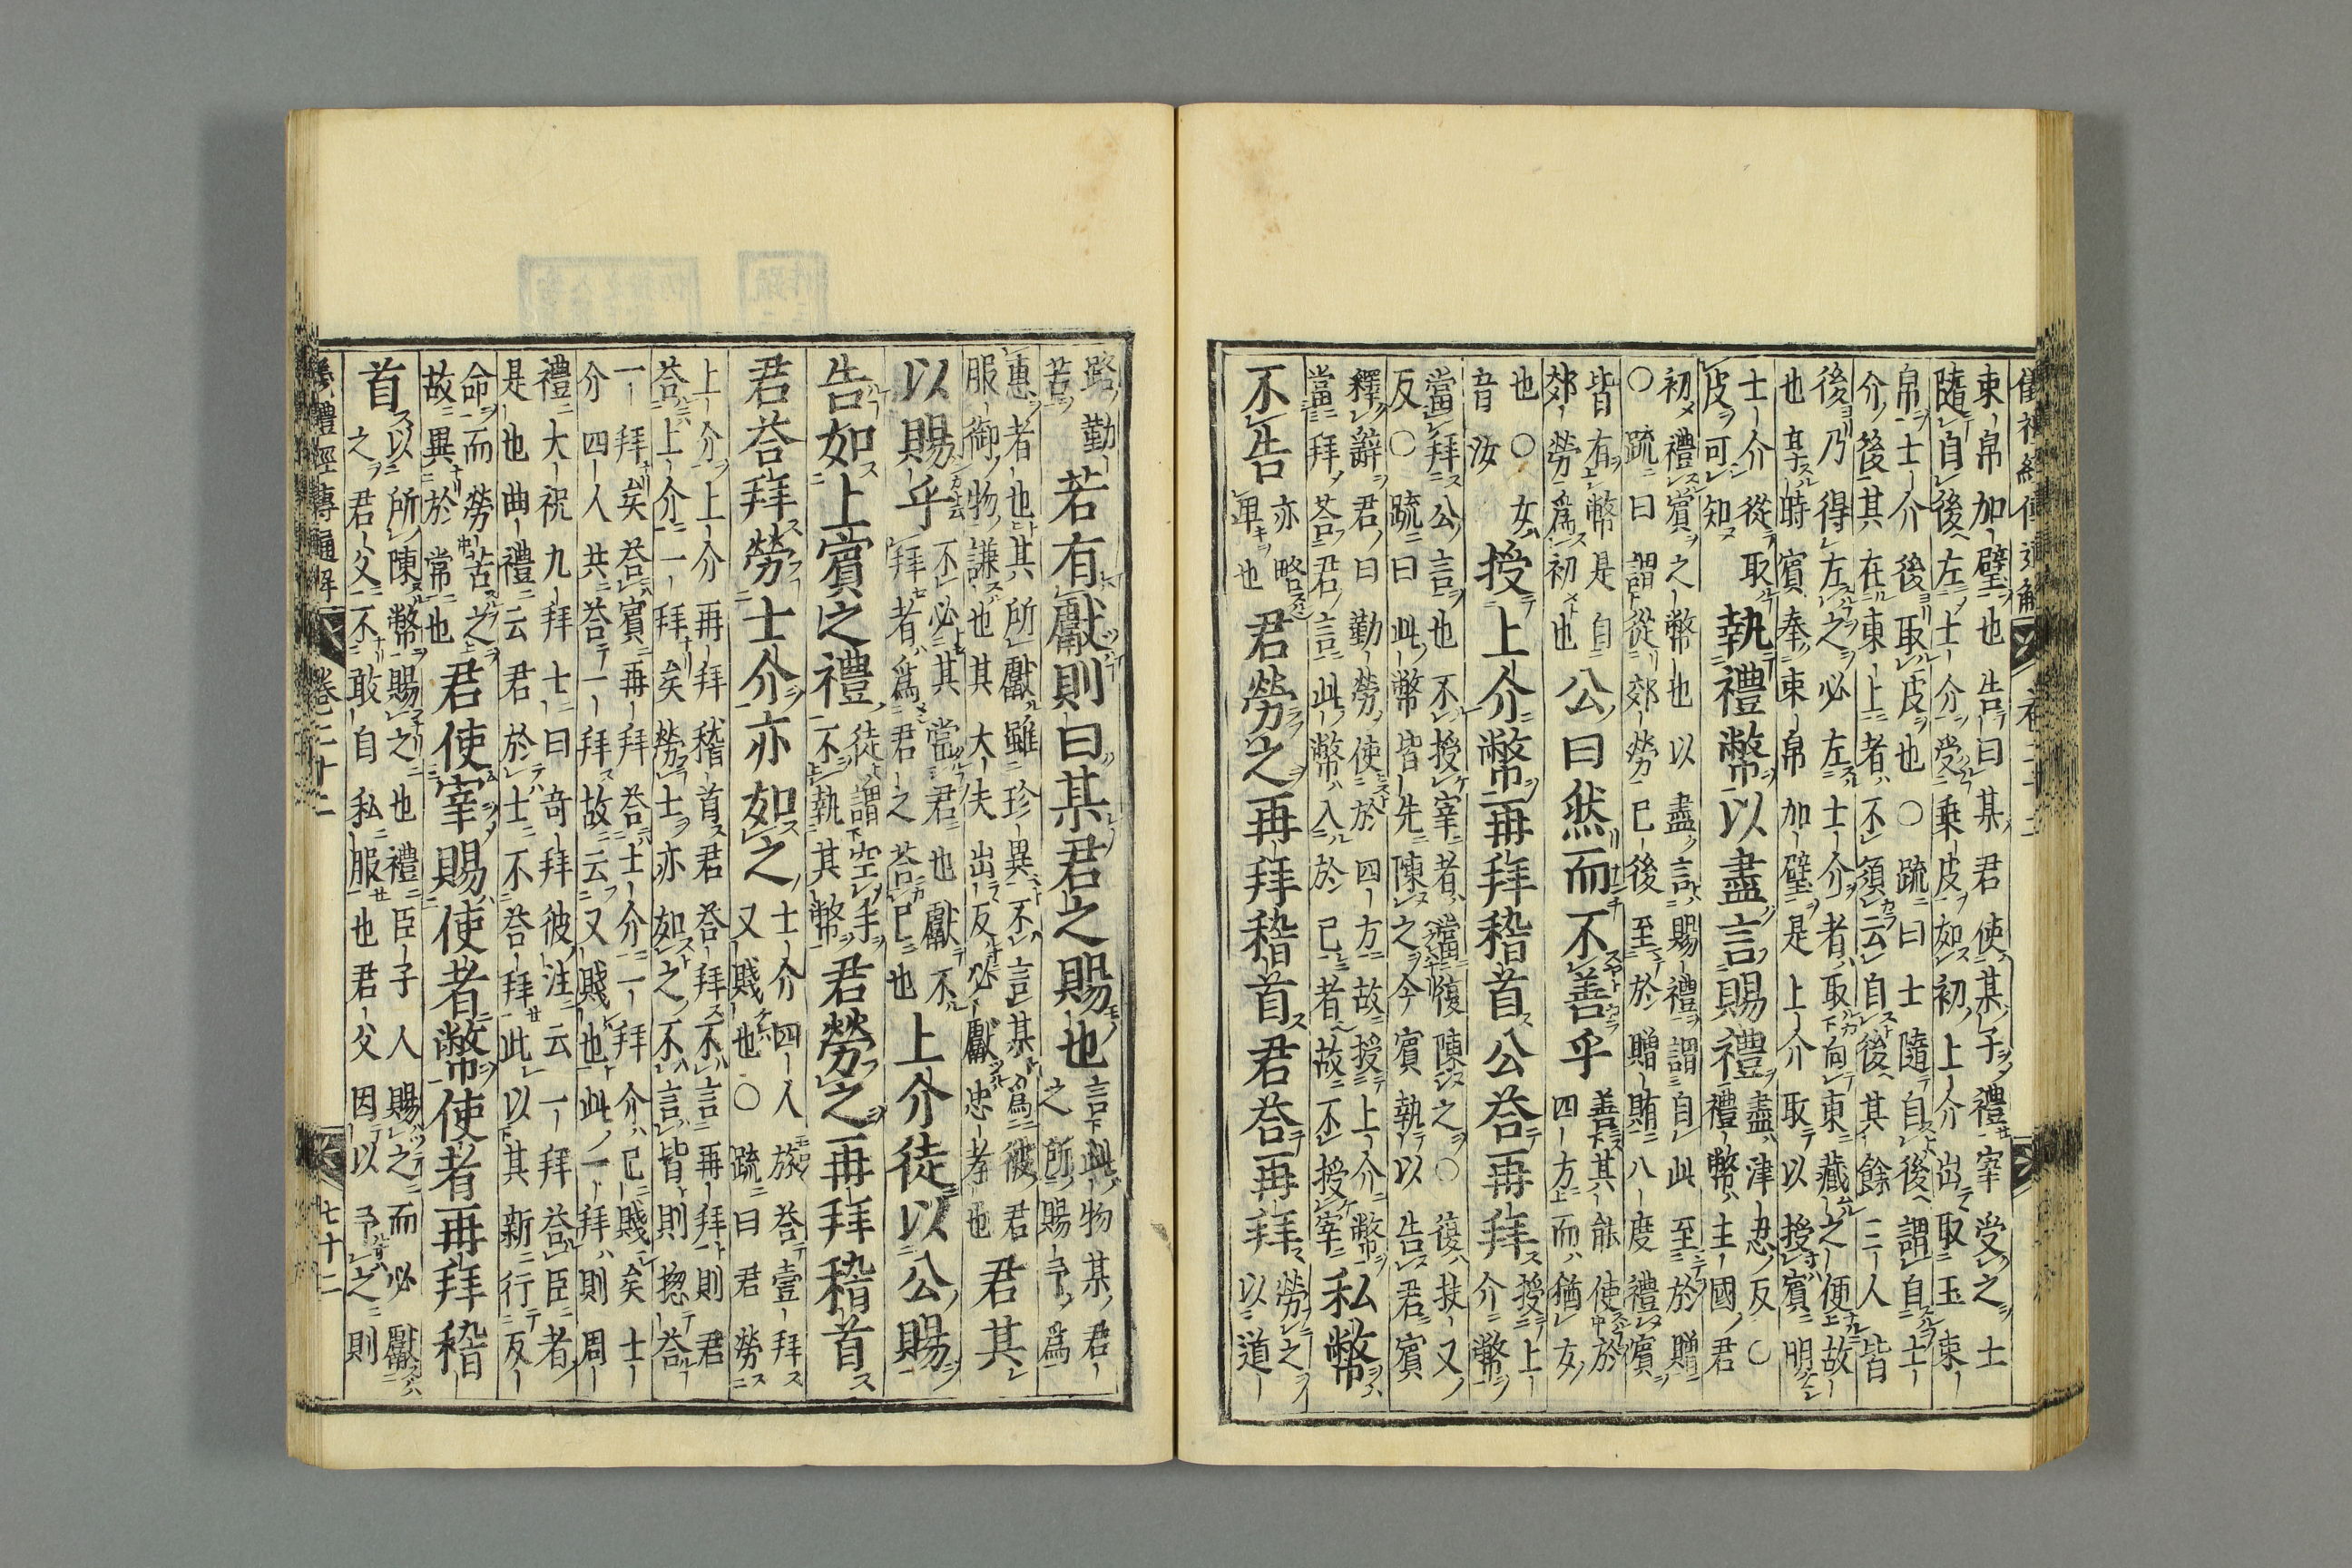 束帛加璧也告曰某君使某子禮宰受之士
隨自後左士介受乘皮如初上介出取玉束
帛士介後取皮也○疏曰士隨自後謂自士
介後其在東上者不須云自後其餘三人皆
後乃得左之必左士介者取向東藏之便故
也享時賓奉束帛加璧是上介取以授賓明
士介從取
皮可知
執禮幣以盡言賜禮
盡津忍反○
禮幣主國君
初禮賓之幣也以盡言賜禮謂自此至於贈
○疏曰謂從郊勞已後至於贈賄八度禮賓
皆有幣是自
郊勞爲初也
公曰然而不善乎
善其能使於
四方而猶女
也○女
音汝
授上介幣再拜稽首公荅再拜
授上
介幣
當拜公言也不授宰者當復陳之○復扶又
反○疏曰此幣皆先陳之今賓執以告君賓
釋辭君曰勤勞使於四方故授上介幣
當拜荅君言此幣入於已者故不授宰
私幣
不告
亦略
卑也
君勞之再拜稽首君荅再拜
勞之
以道
路勤
苦
若有獻則曰某君之賜也
言此物某君
之所賜予爲
惠者也其所獻雖珍異不言某爲彼君
服御物謙也其大夫出反必獻忠孝也
君其
以賜乎
不必其當君也獻不
拜者爲君之荅已也
上介徒以公賜
告如上賓之禮
徒謂空手
不執其幣
君勞之再拜稽首
君荅拜勞士介亦如之
士介四人旅荅壹拜
又賤也○疏曰君勞
上介上介再拜稽首君荅拜不言再拜則君
荅上介一拜矣勞士亦如之不言皆則揔荅
一拜矣荅賓再拜荅士介一拜介已賤矣士
介四人共荅一拜故云又賤也此一拜則周
禮大祝九拜七曰奇拜彼注云一拜荅臣者
是也曲禮云君於士不荅拜此以其新行反
命而勞苦之
故異於常也
君使宰賜使者幣使者再拜稽
首
以所陳幣賜之也禮臣子人賜之而必獻
之君父不敢自私服也君父因以予之則
禮經傳通解 卷二十二 七十二